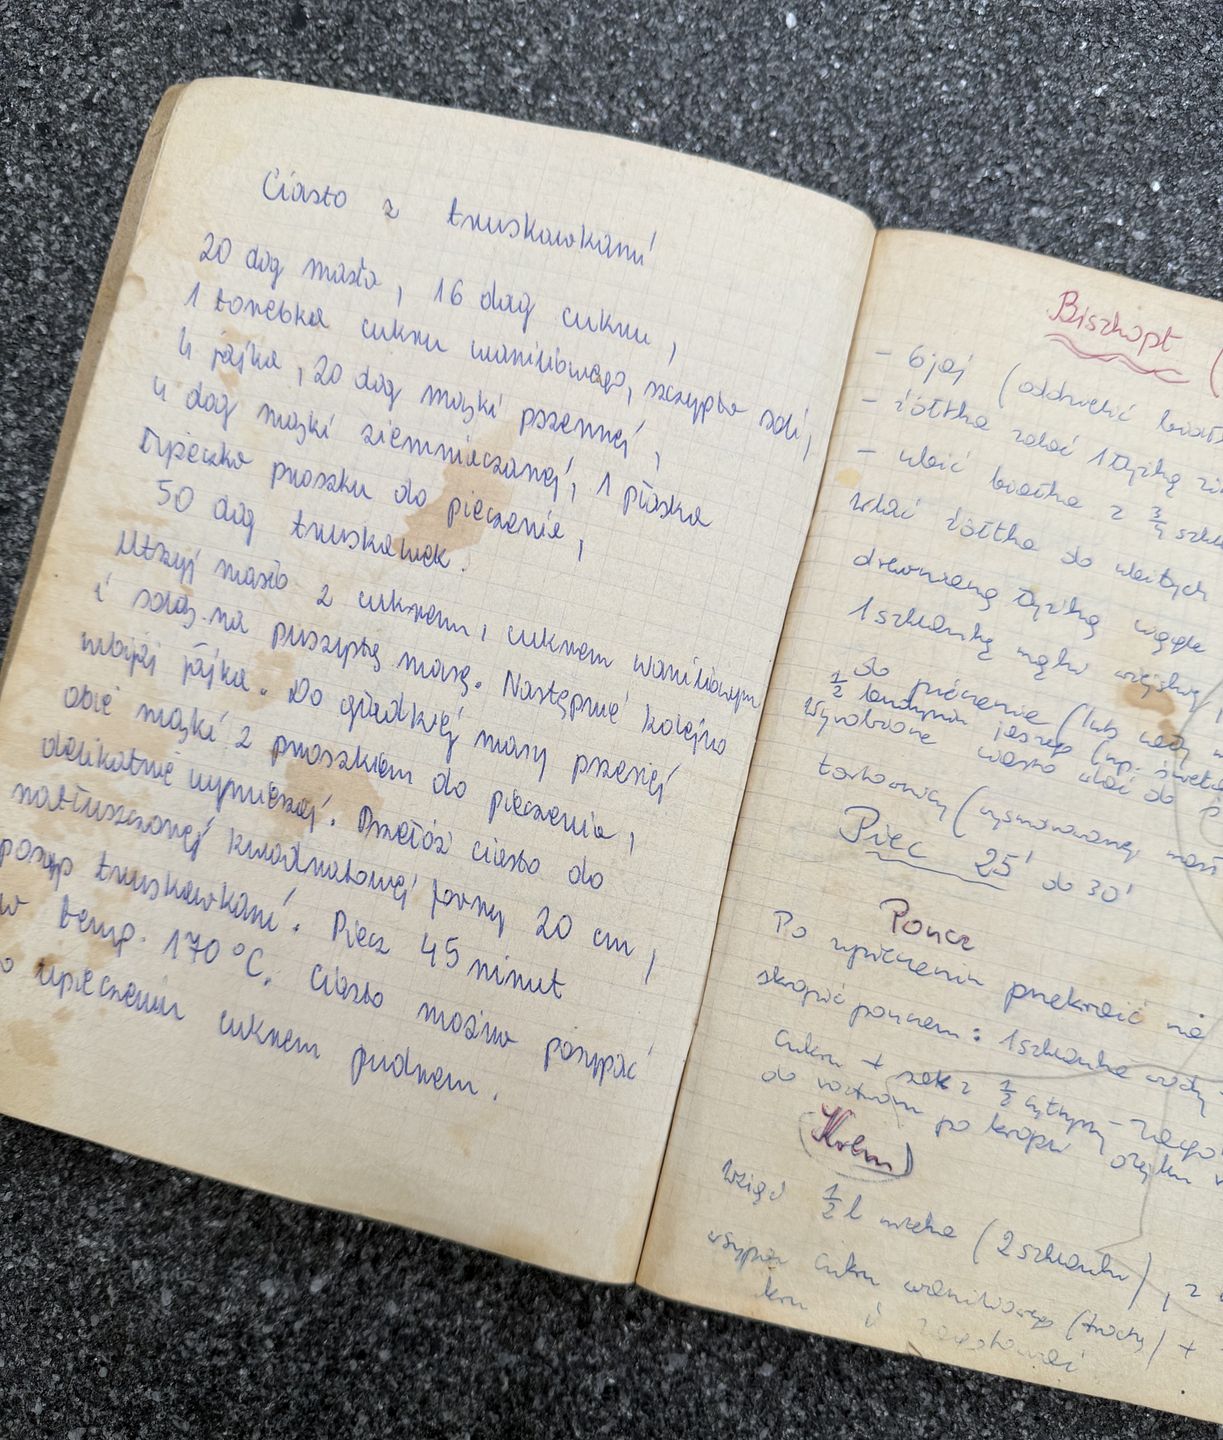 Ciasto z truskawkami
20 dag masła, 16 dag cukru,
1 torebka cukru waniliowego, szczypta soli,
4 jajka, 20 dag mąki pszennej,
4 dag mąki ziemniaczanej, 1 płaska
łyżeczka proszku do pieczenia,
50 dag truskawek.
Utrzyj masło z cukrem, cukrem waniliowym
i solą na puszystą masę. Następnie kolejno
wbijaj jajka. Do gładkiej masy przesiej
obie mąki z proszkiem do pieczenia,
delikatnie wymieszaj. Przełóż ciasto do
natłuszczonej kwadratowej formy 20 cm,
posyp truskawkami. Piecz 45 minut
w temp. 170°C. Ciasto można posypać
po upieczeniu cukrem pudrem.
Biszkopt (
- 6 jaj (oddzielić
- żółtka zalać 1 łyżką
- ubić białka z 3/4
wlać żółtka do ubitych
drewnianą łyżką
1 szklankę mąki
do pieczenia (lub
1/2
wyrobione ciasto wlać do
tortownicy (wysmarowanej
Piec 25' do 30'
Poncz
Po upieczeniu przekroić na
skropić ponczem: 1 szklanka wody
cukru + sok z 1/2 cytryny
Krem
wziąć 1/2 l mleka (2 szklanki), z
wsypać cukru waniliowego (trochę) +
i zagotować